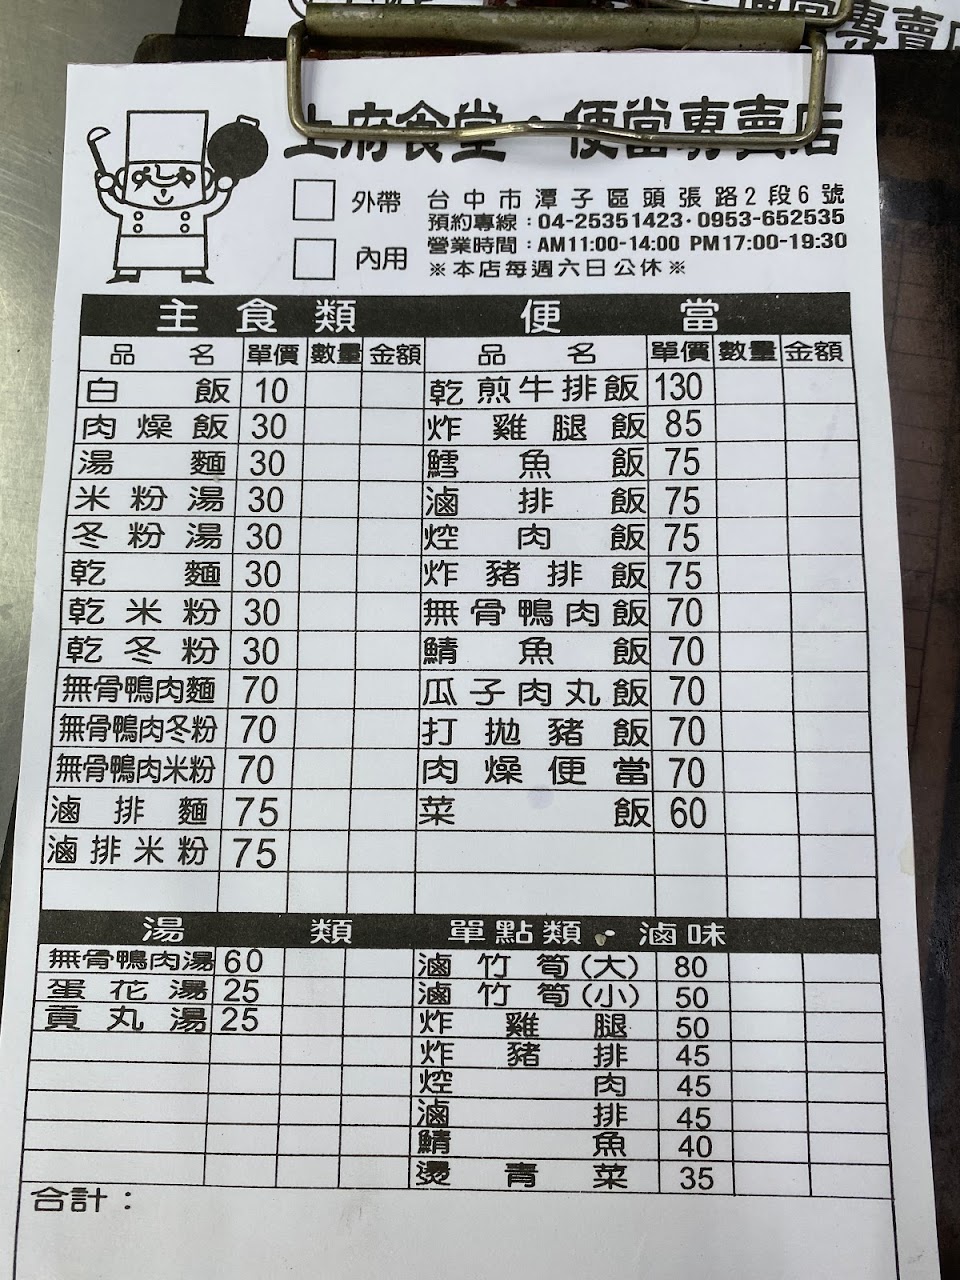 上府食堂·便當專賣店
外帶
內用
台中市潭子區頭張路2段6號
預約專線：04-25351423·0953-652535
營業時間：AM11:00-14:00 PM17:00-19:30
※本店每週六日公休※
主食類 便當
品名 單價 數量 金額 品名 單價 數量 金額
白飯 10 乾煎牛排飯 130
肉燥飯 30 炸雞腿飯 85
湯麵 30 鱈魚飯 75
米粉湯 30 滷排飯 75
冬粉湯 30 焢肉飯 75
乾麵 30 炸豬排飯 75
乾米粉 30 無骨鴨肉飯 70
乾冬粉 30 鯖魚飯 70
無骨鴨肉麵 70 瓜子肉丸飯 70
無骨鴨肉冬粉 70 打拋豬飯 70
無骨鴨肉米粉 70 肉燥便當 70
滷排麵 75 菜飯 60
滷排米粉 75
湯類 單點類·滷味
無骨鴨肉湯 60 滷竹筍(大) 80
蛋花湯 25 滷竹筍(小) 50
貢丸湯 25 炸雞腿 50
炸豬排 45
焢肉 45
滷排 45
鯖魚 40
燙青菜 35
合計：